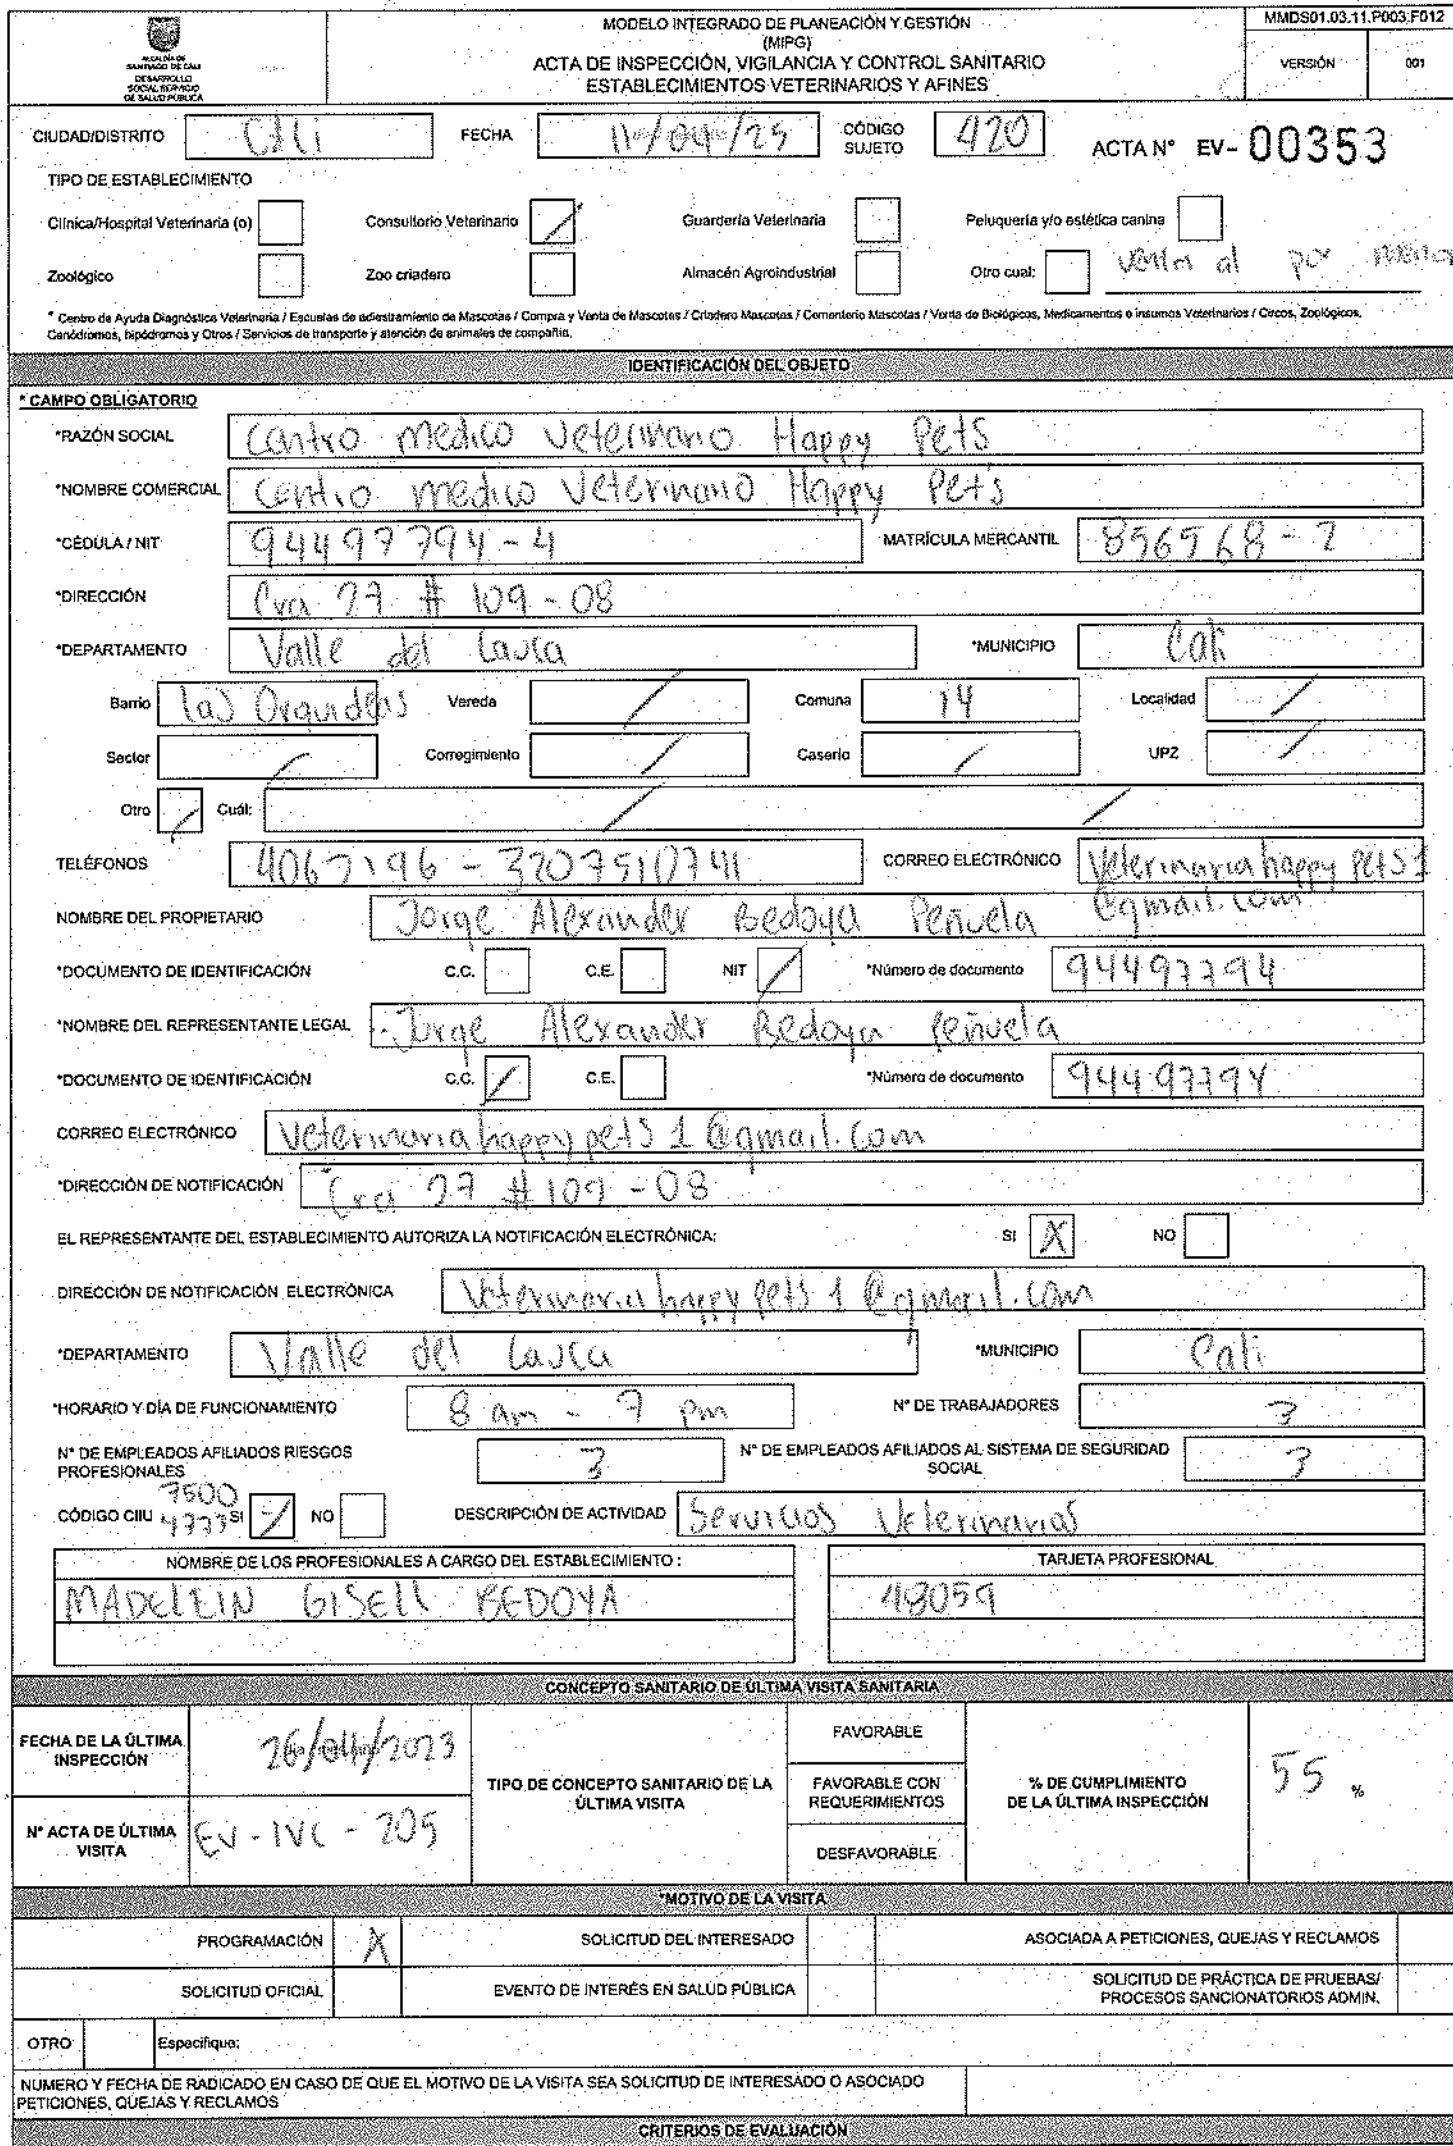 ALCALDÍA DE
SANTIAGO DE CALI
DESARROLLO
SOCIAL SERVICIO
DE SALUD PÚBLICA
MODELO INTEGRADO DE PLANEACIÓN Y GESTIÓN
(MIPG)
ACTA DE INSPECCIÓN, VIGILANCIA Y CONTROL SANITARIO
ESTABLECIMIENTOS VETERINARIOS Y AFINES
MMDS01.03.11.P003.F012
VERSIÓN 001
CIUDAD/DISTRITO Cali FECHA 11/04/25 CÓDIGO SUJETO 420 ACTA N° EV- 00353
TIPO DE ESTABLECIMIENTO
Clínica/Hospital Veterinaria (o) Consultorio Veterinario / Guardería Veterinaria Peluquería y/o estética canina
Zoológico Zoo criadero Almacén Agroindustrial Otro cual: ventas al por menor
* Centro de Ayuda Diagnóstica Veterinaria / Escuelas de adiestramiento de Mascotas / Compra y Venta de Mascotas / Criadero Mascotas / Cementerio Mascotas / Venta de Biológicos, Medicamentos o insumos Veterinarios / Circos, Zoológicos,
Canódromos, hipódromos y Otros / Servicios de transporte y atención de animales de compañía.
IDENTIFICACIÓN DEL OBJETO
* CAMPO OBLIGATORIO
*RAZÓN SOCIAL Centro medico veterinario Happy Pets
*NOMBRE COMERCIAL Centro medico veterinario Happy Pet's
*CÉDULA / NIT 94497794-4 MATRÍCULA MERCANTIL 856568-2
*DIRECCIÓN Cra 27 # 109-08
*DEPARTAMENTO Valle del Cauca *MUNICIPIO Cali
Barrio las Orquideas Vereda / Comuna 14 Localidad /
Sector / Corregimiento / Caserío / UPZ /
Otro / Cuál: / /
TELÉFONOS 4067196 - 3207510741 CORREO ELECTRÓNICO Veterinariahappypets1
@gmail.com
NOMBRE DEL PROPIETARIO Jorge Alexander Bedoya Peñuela
*DOCUMENTO DE IDENTIFICACIÓN C.C. C.E. NIT / *Número de documento 94497794
*NOMBRE DEL REPRESENTANTE LEGAL Jorge Alexander Bedoya Peñuela
*DOCUMENTO DE IDENTIFICACIÓN C.C. / C.E. *Número de documento 94497794
CORREO ELECTRÓNICO Veterinariahappypets1@gmail.com
*DIRECCIÓN DE NOTIFICACIÓN Cra 27 #109-08
EL REPRESENTANTE DEL ESTABLECIMIENTO AUTORIZA LA NOTIFICACIÓN ELECTRÓNICA: SI X NO
DIRECCIÓN DE NOTIFICACIÓN ELECTRÓNICA Veterinariahappypets1@gmail.com
*DEPARTAMENTO Valle del Cauca *MUNICIPIO Cali
*HORARIO Y DÍA DE FUNCIONAMIENTO 8 am - 7 pm N° DE TRABAJADORES 3
N° DE EMPLEADOS AFILIADOS RIESGOS PROFESIONALES 3 N° DE EMPLEADOS AFILIADOS AL SISTEMA DE SEGURIDAD SOCIAL 3
7500
CÓDIGO CIIU 4773 SI / NO DESCRIPCIÓN DE ACTIVIDAD Servicios Veterinarias
NOMBRE DE LOS PROFESIONALES A CARGO DEL ESTABLECIMIENTO : TARJETA PROFESIONAL
MADELEIN GISELL BEDOYA 48059
CONCEPTO SANITARIO DE ÚLTIMA VISITA SANITARIA
FECHA DE LA ÚLTIMA INSPECCIÓN 26/04/2023
N° ACTA DE ÚLTIMA VISITA EV-IVC-205
TIPO DE CONCEPTO SANITARIO DE LA ÚLTIMA VISITA
FAVORABLE
FAVORABLE CON REQUERIMIENTOS
DESFAVORABLE
% DE CUMPLIMIENTO DE LA ÚLTIMA INSPECCIÓN 55 %
*MOTIVO DE LA VISITA
PROGRAMACIÓN X SOLICITUD DEL INTERESADO ASOCIADA A PETICIONES, QUEJAS Y RECLAMOS
SOLICITUD OFICIAL EVENTO DE INTERÉS EN SALUD PÚBLICA SOLICITUD DE PRÁCTICA DE PRUEBAS/ PROCESOS SANCIONATORIOS ADMIN.
OTRO Especifique:
NUMERO Y FECHA DE RADICADO EN CASO DE QUE EL MOTIVO DE LA VISITA SEA SOLICITUD DE INTERESADO O ASOCIADO
PETICIONES, QUEJAS Y RECLAMOS
CRITERIOS DE EVALUACIÓN